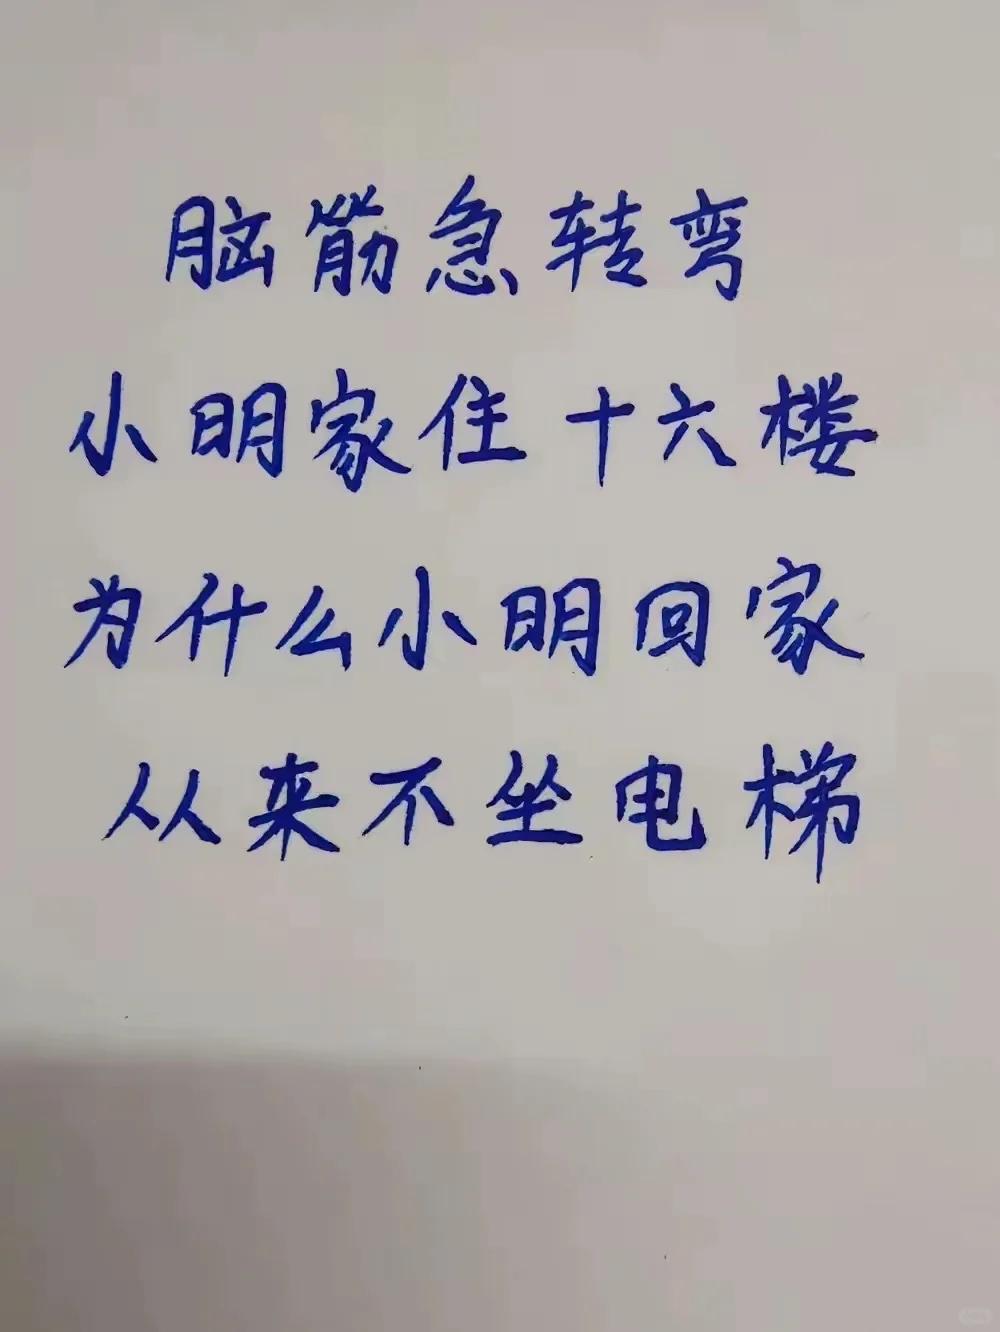 脑筋急转弯
小明家住十六楼
为什么小明回家
从来不坐电梯